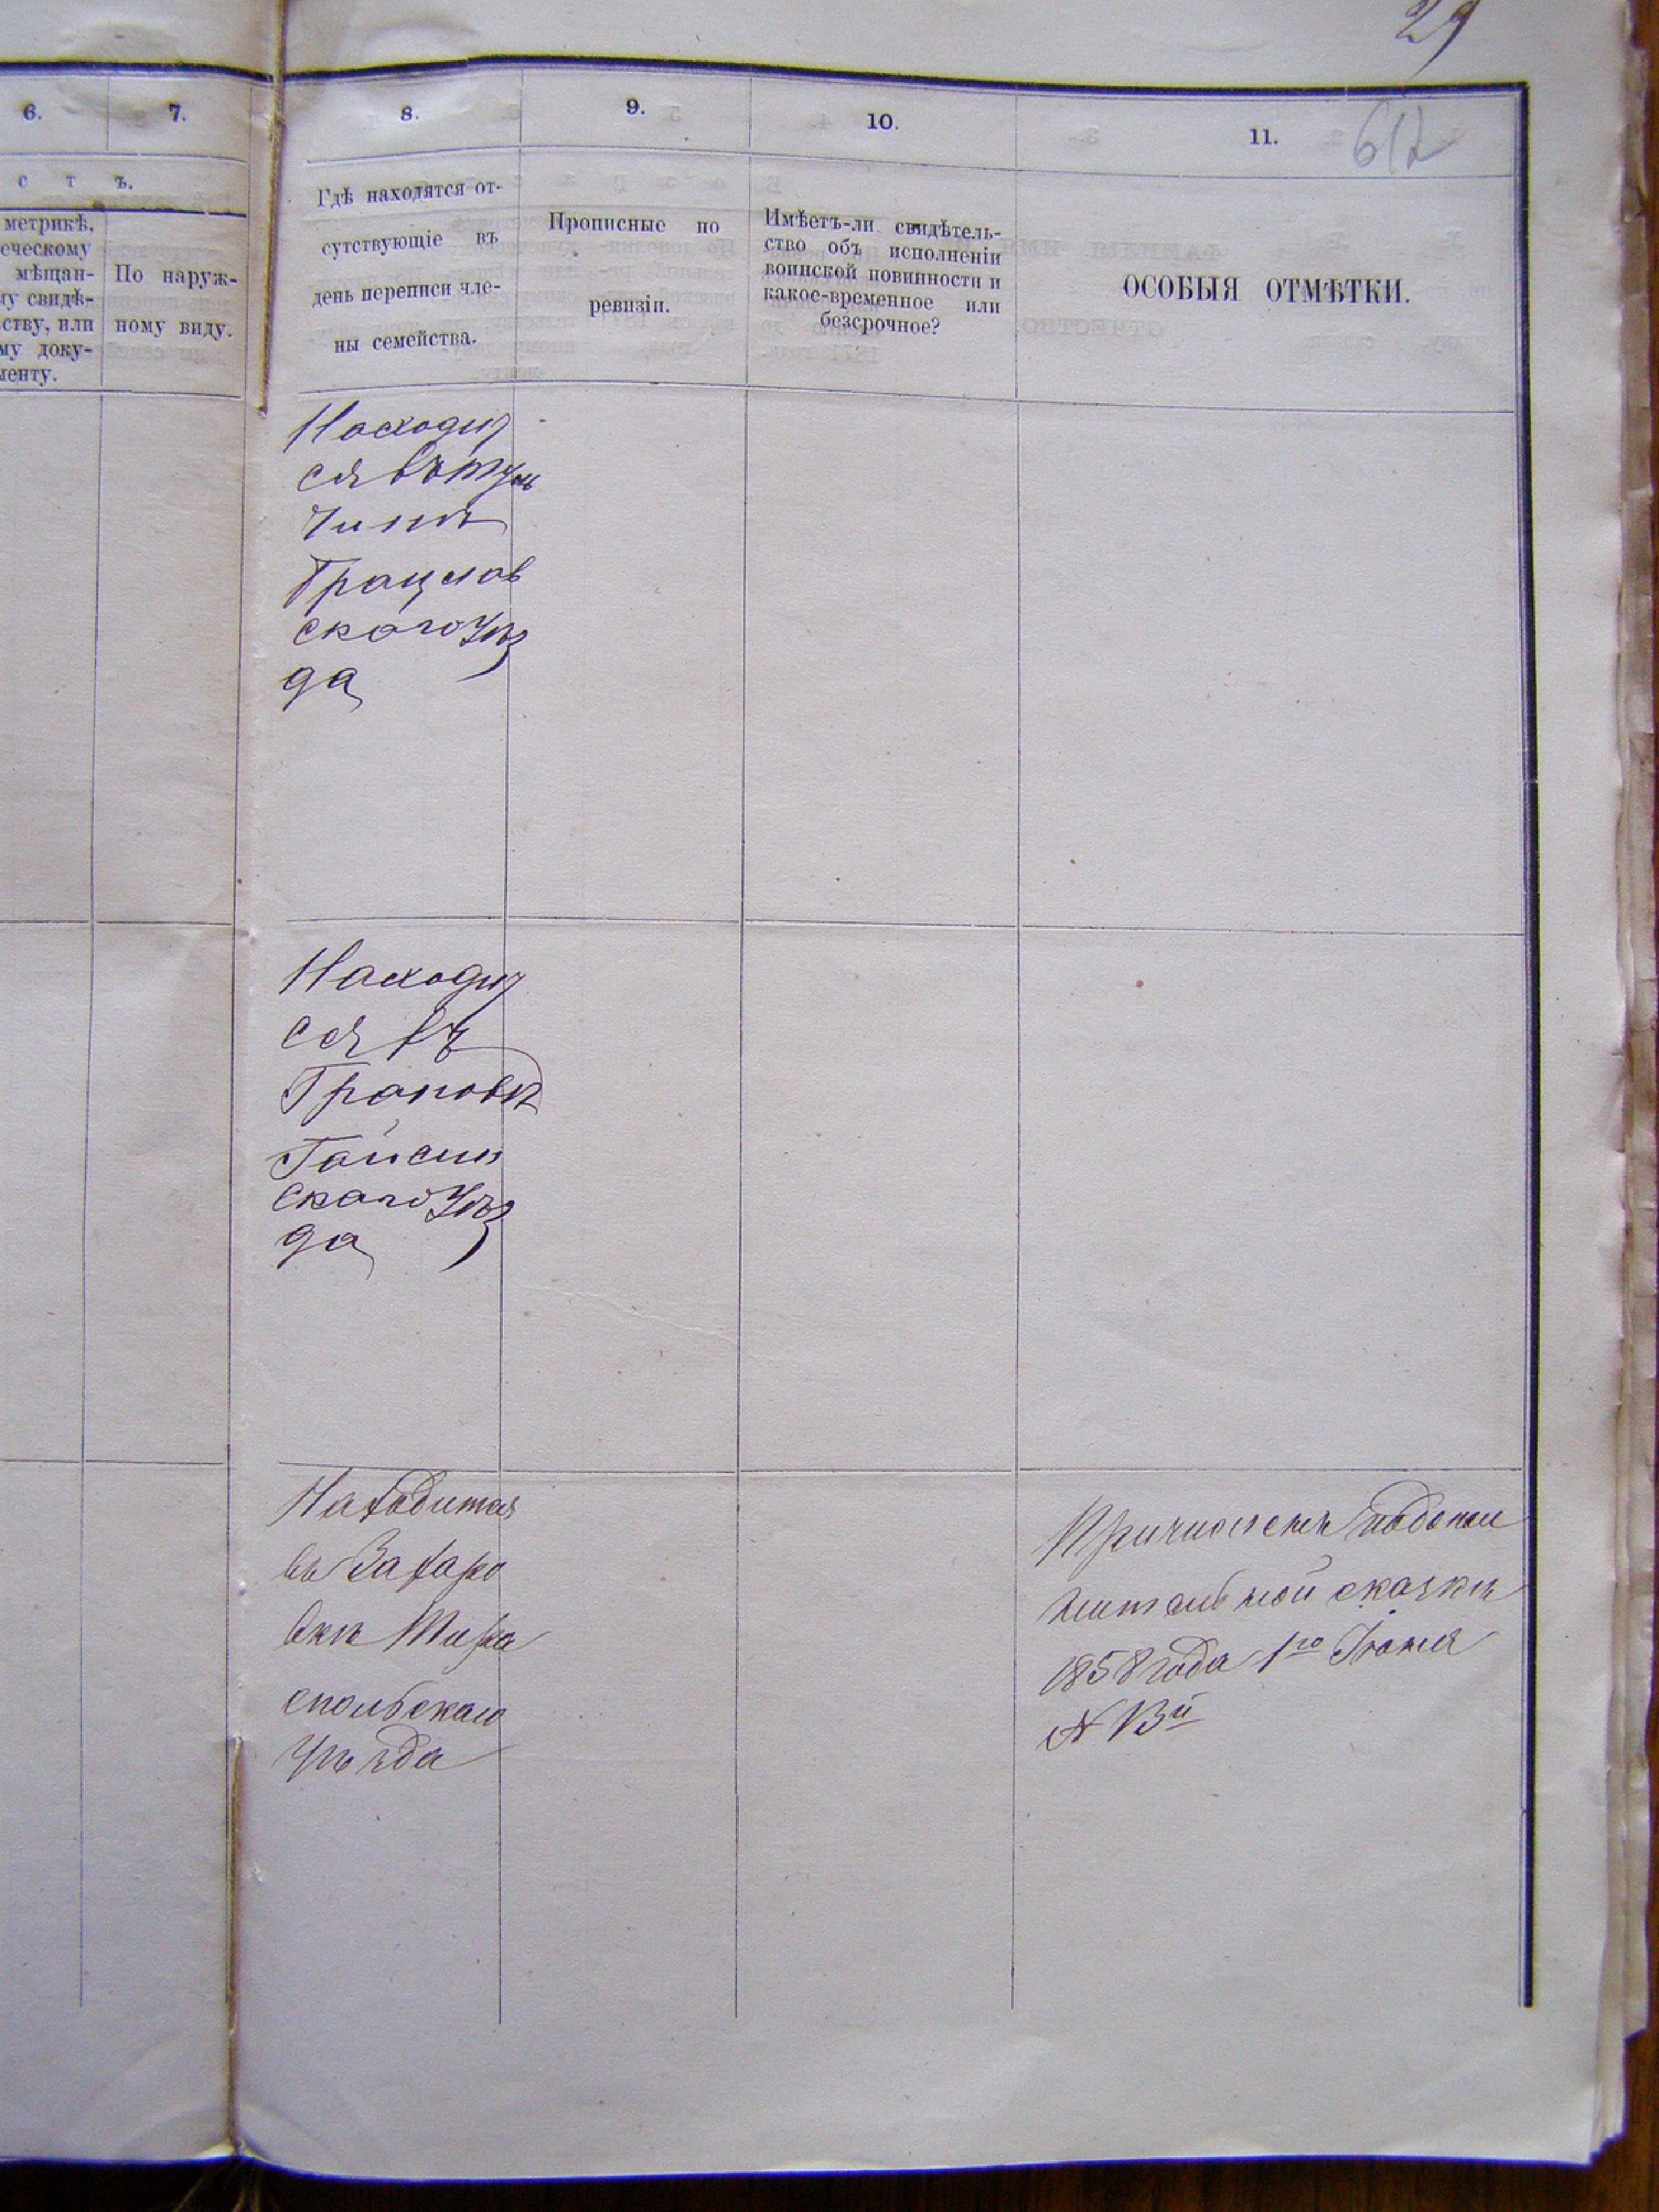 29
6.
7.
8.
9.
10.
11.
612
с т ъ.
метрикѣ,
еческому
мѣщан-
му свидѣ-
ству, или
му доку-
менту.
По наруж-
ному виду.
Гдѣ находятся от-
сутствующіе въ
день переписи чле-
ны семейства.
Прописные по
ревизіи.
Имѣетъ-ли свидѣтель-
ство объ исполненіи
воинской повинности и
какое-временное или
безсрочное?
ОСОБЫЯ ОТМѢТКИ.
Находит
ся въ Туль
чинѣ
Брацлав
скаго Уѣз
да
Находит
ся въ
Грановѣ
Гайсин
скаго Уѣз
да
Находится
въ Захаро
вкѣ Тира
спольскаго
Уѣзда
Причисленъ подопол
нительной сказкѣ
1858 года 1го Іюня
№ 13й